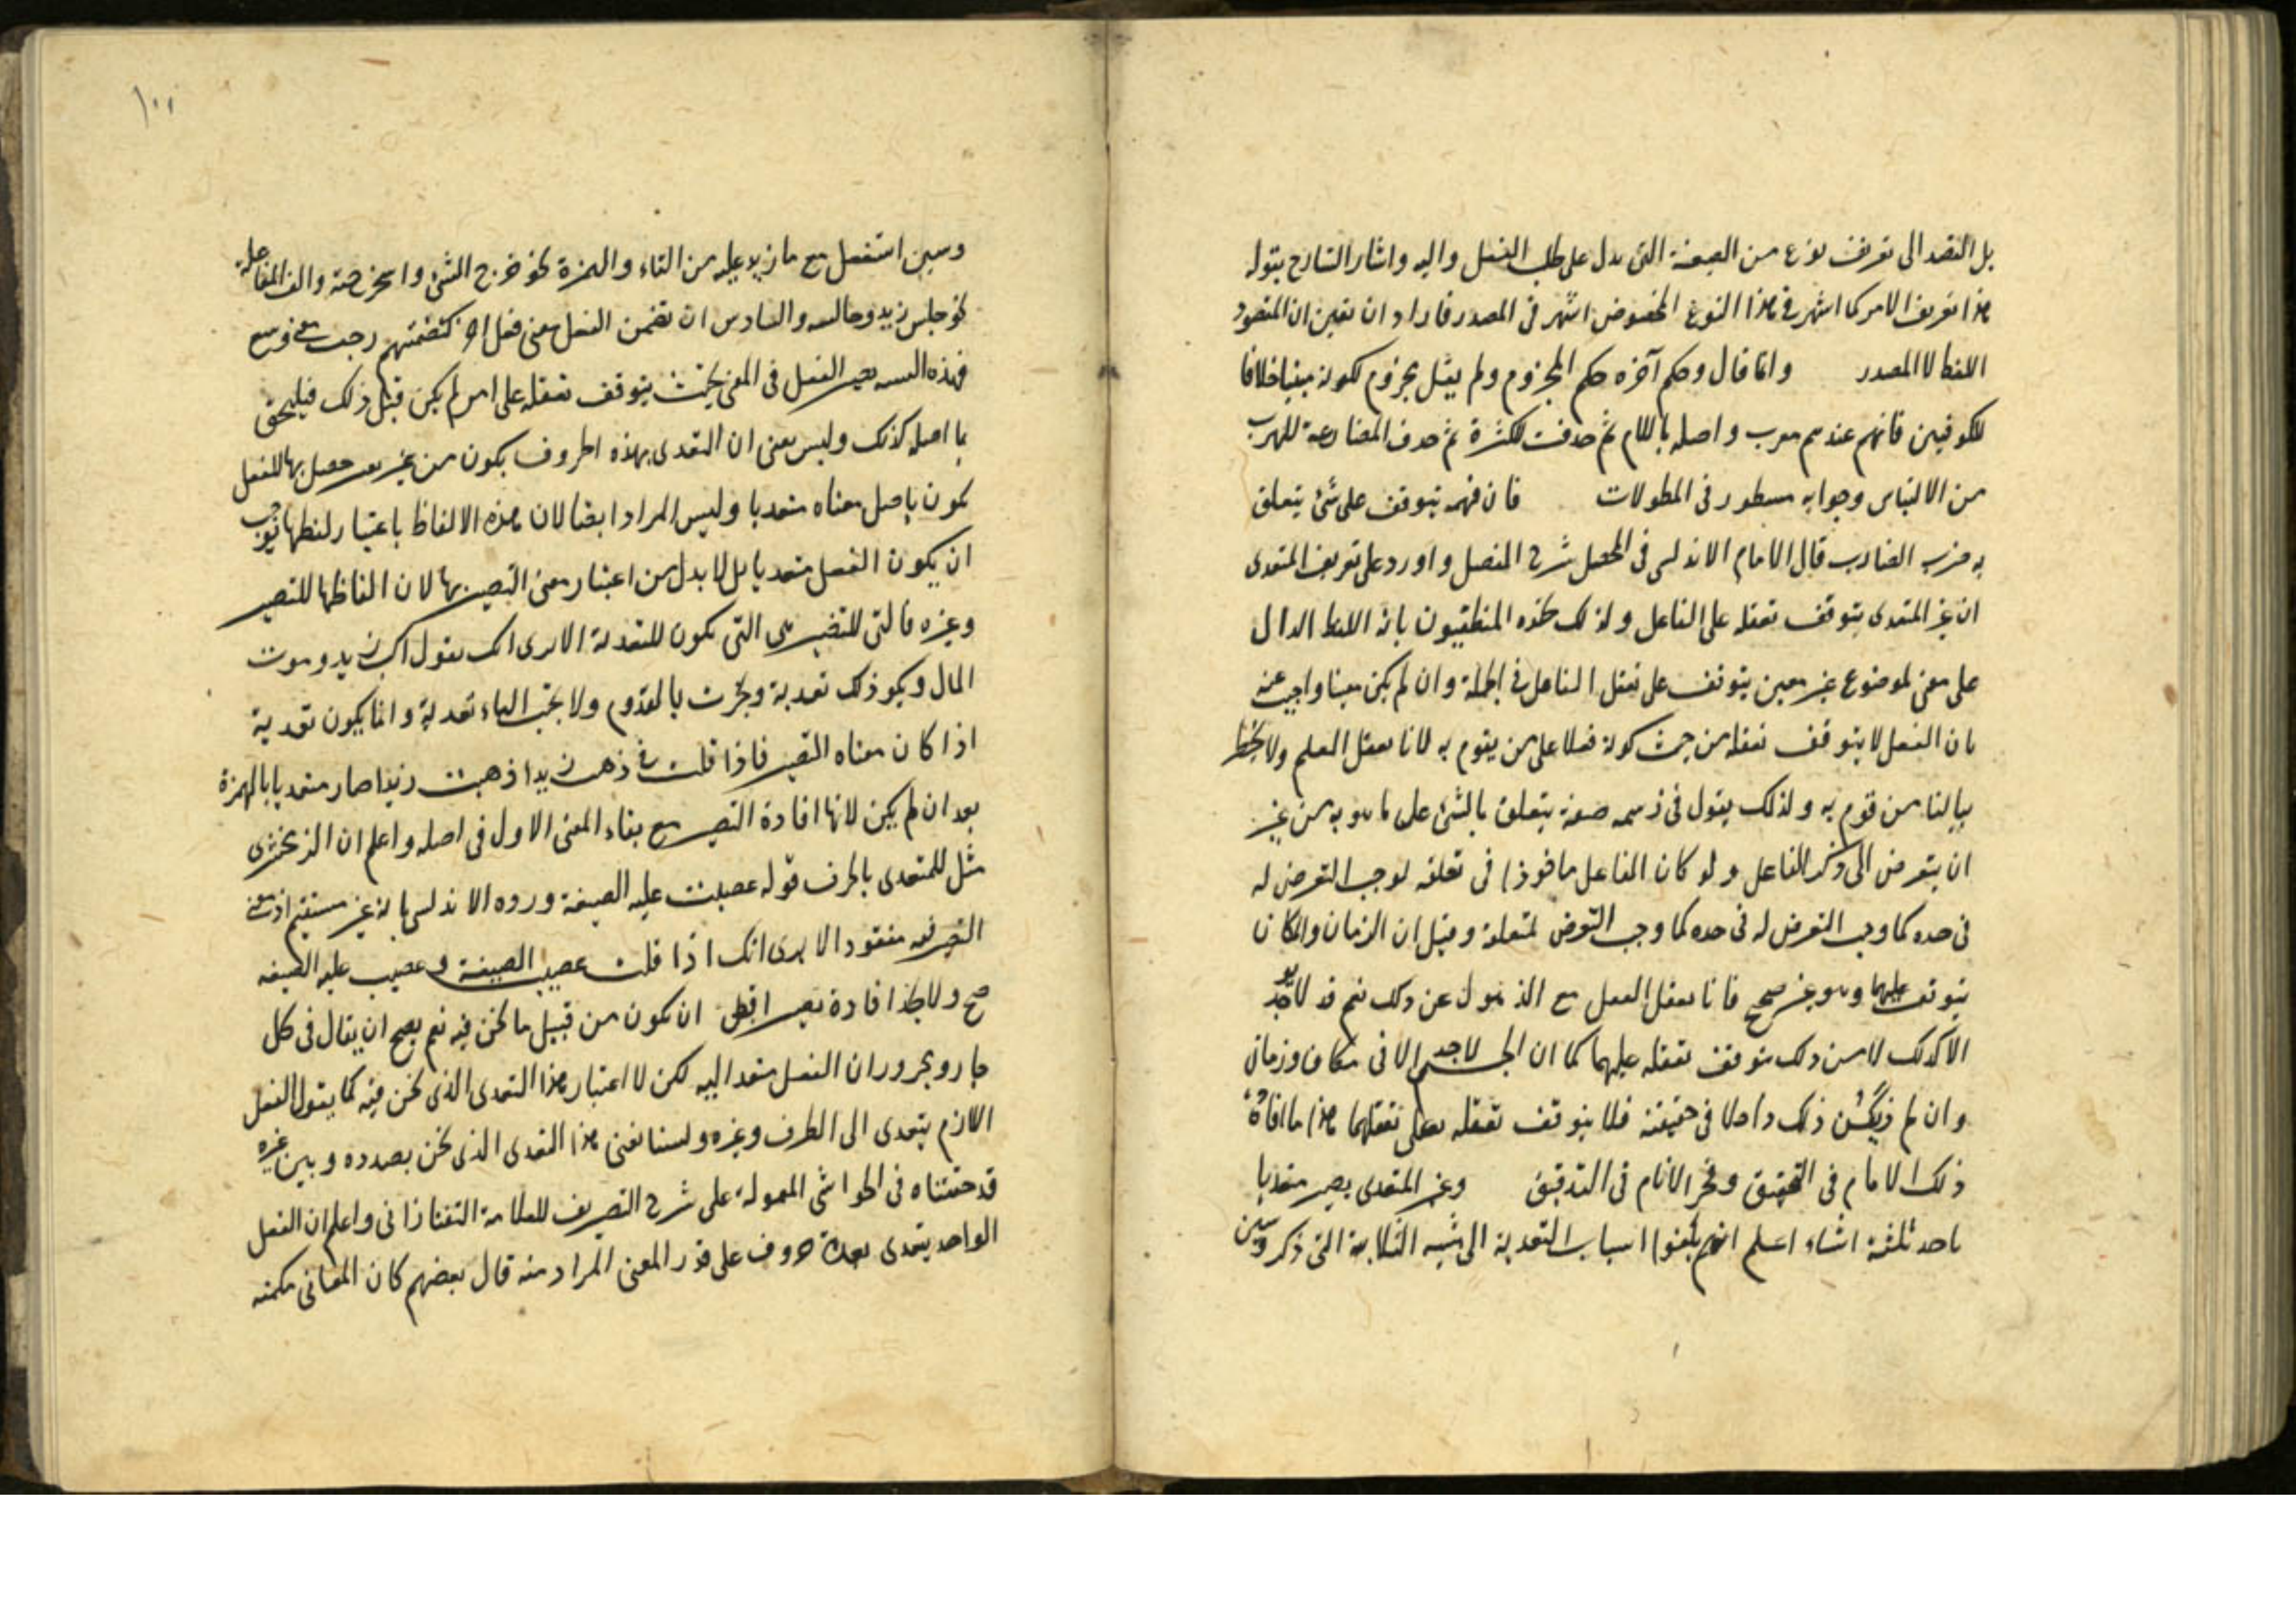 بل القصد الى تعريف نوع من الصيغة التى يدل على طلب الفعل واليه واشار الشارح بقوله
هذا تعريف الامر كما اشتهر فى هذا النوع المخصوص اشتهر فى المصدر فاراد ان تعين ان المقصود
اللفظ لا المصدر وانما قال وحكم آخره حكم المجزوم ولم يقل مجزوم لكونه مبنيا خلافا
للكوفيين فانهم عندهم معرب واصله باللام ثم حذفت للكثرة ثم حذف المضارعة للهرب
من الالتباس وجوابه مسطور فى المطولات فان فهمه يتوقف على شئ يتعلق
به ضرب الضارب قال الامام الاندلسى فى المحصل شرح المفصل واورد على تعريف المتعدى
ان غير المتعدى يتوقف تعقله على الفاعل ولذلك حده المنطقيون بانه اللفظ الدال
على معنى لموضوع غير معين يتوقف على تعقل الفاعل فى الجملة وان لم يكن معينا واجيب عنه
بان الفعل لا يتوقف تعقله من حيث كونه فعلا على من يقوم به لانا نعقل العلم ولا يخطر
ببالنا من قوم به ولذلك يقول فى رسمه صفة يتعلق بالشئ على ما هو به من غير
ان يتعرض الى ذكر الفاعل ولو كان الفاعل ماخوذا فى تعلقه لوجب التعرض له
فى حده كما وجب التعرض له فى حده كما وجب التعرض لمتعلقه وقيل ان الزمان والمكان
يتوقف عليهما وهو غير صحيح فانا نعقل الفعل مع الذهول عن ذلك نعم قد لا يوجد
الا كذلك لا من ذلك يتوقف تعقله عليهما كما ان الجسم لا يوجد الا فى مكان وزمان
وان لم يكن ذلك داخلا فى حقيقته فلا يتوقف تعقله على تعقلهما هذا ما افاده
ذلك الامام فى التحقيق وفخر الانام فى التدقيق وغير المتعدى يصير متعديا
باحد ثلثة اشياء اعلم انهم بلغوا اسباب التعدية الى ستة الثلاثة التى ذكر وسين
١٠٠
وسين استفعل مع ما زيد عليه من التاء والهمزة نحو خرج الشئ واستخرجته والف المفاعلة
نحو جلس زيد وجالسته والسادس ان تضمن الفعل معنى فعل آخر كتضمنهم رحب معنى وسع
فهذه الستة تصير الفعل فى المعنى بحيث يتوقف تعقله على امر لم يكن قبل ذلك فيلحق
بما اصله كذلك وليس معنى ان التعدى بهذه الحروف يكون من غير حصل بها للفعل
كون باصل معناه متعديا وليس المراد ايضا لان هذه الالفاظ باعتبار لفظها توجب
ان يكون الفعل متعديا بل لا بد من اعتبار معنى التصيير بها لان الفاظها للتصيير
وغيره فالتى للتصيير هى التى تكون للتعدية الا ترى انك تقول اكب زيد وموت
المال ونحو ذلك تعدية ونحرت بالقدوم ولا يجب الباء تعدية وانما يكون تعدية
اذا كان معناه التصيير فاذا قلت فى ذهب زيد اذهبت زيدا صار متعديا بالهمزة
بعد ان لم يكن لانها افادة التصيير مع بقاء المعنى الاول فى اصله واعلم ان الزمخشرى
مثل للمتعدى بالحرف قوله غصبت عليه الضيعة ورده الاندلسى بانه غير مستقيم اذ معنى
التصيير فيه مفقود الا ترى انك اذا قلت غصب الضيعة وغصب عليه الضيعة
صح ولا يخل افادة تصيير ان يكون من قبيل ما نحن فيه نعم يصح ان يقال فى كل
جار ومجرور ان الفعل متعد اليه لكن لا اعتبار هذا التعدى الذى نحن فيه كما يقول الفعل
اللازم يتعدى الى الظرف وغيره ولسنا نعنى هذا التعدى الذى نحن بصدده وبين غيره
قد حققناه فى الحواشى المعمولة على شرح التصريف للعلامة التفتازانى واعلم ان الفعل
الواحد يتعدى بعدة حروف على قدر المعنى المراد منه قال بعضهم كان المعانى مكمنه